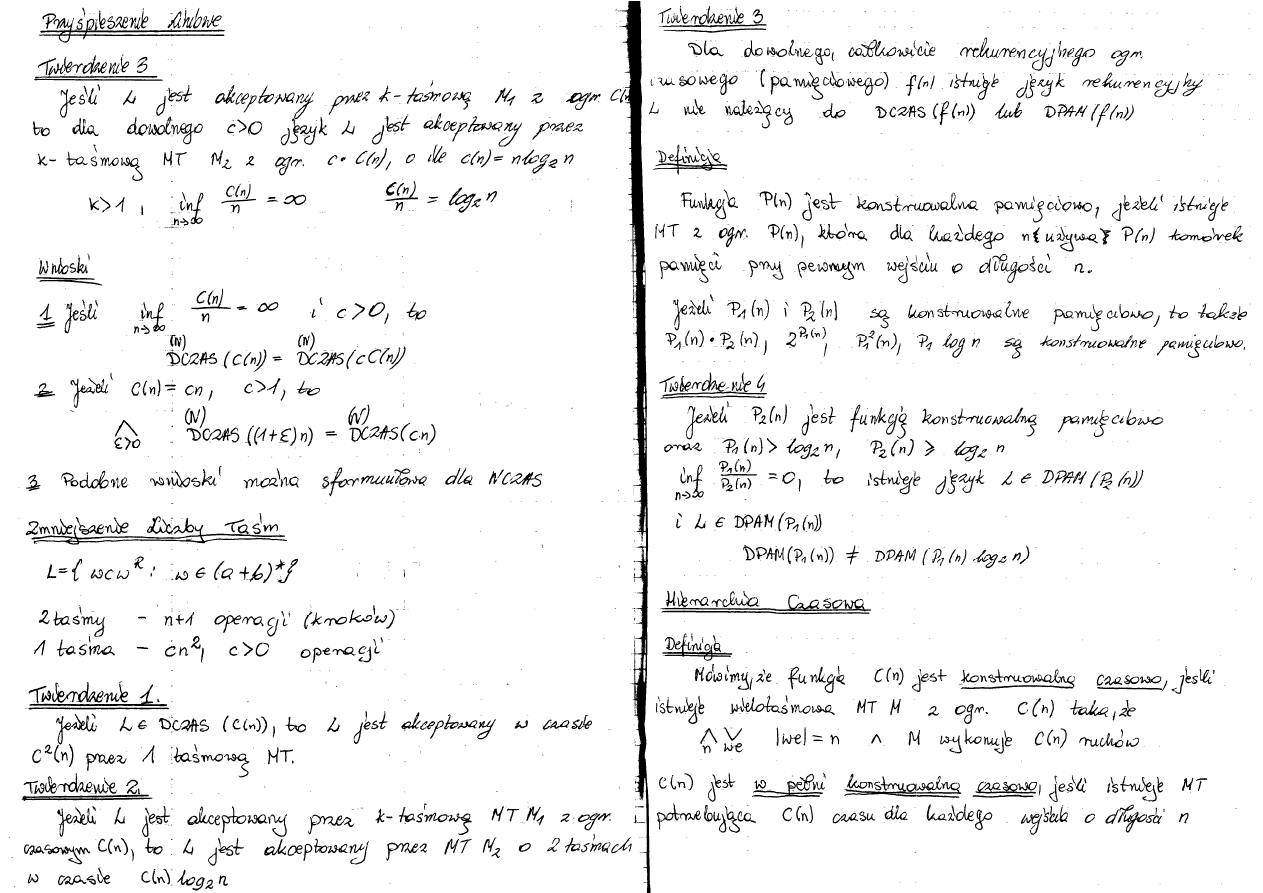 Przyśpieszenie liniowe
Twierdzenie 3
Jeśli L jest akceptowany przez k-taśmową M₁ z ogr. C(n)
to dla dowolnego c>0 język L jest akceptowany przez
k-taśmową MT M₂ z ogr. c·C(n), o ile c(n)=nlog₂n
k>1, inf n→∞ C(n)/n = ∞ C(n)/n = log₂n
Wnioski
1 Jeśli inf n→∞ C(n)/n = ∞ i c>0, to
(N) DCZAS(C(n)) = (N) DCZAS(cC(n))
2 Jeżeli C(n)=cn, c>1, to
⋀ ε>0 (N) DCZAS((1+ε)n) = (N) DCZAS(cn)
3 Podobne wnioski można sformuułowa dla NCZAS
Zmniejszenie liczby Taśm
L={ wcwᴿ : w∈(a+b)*}
2taśmy - n+1 operacji (kroków)
1 taśma - cn², c>0 operacji
Twierdzenie 1.
Jeżeli L∈ DCZAS (C(n)), to L jest akceptowany w czasie
C²(n) przez 1 taśmową MT.
Twierdzenie 2.
Jeżeli L jest akceptowany przez k-taśmową MT M₁ z ogr.
czasowym C(n), to L jest akceptowany przez MT M₂ o 2 taśmach
w czasie C(n) log₂n
Twierdzenie 3
Dla dowolnego, całkowicie rekurencyjnego ogr.
czasowego (pamięciowego) f(n) istnieje język rekurencyjny
L nie należący do DCZAS(f(n)) lub DPAM(f(n))
Definicja
Funkcja P(n) jest konstruowalna pamięciowo, jeżeli istnieje
MT z ogr. P(n), która dla każdego n{używa} P(n) komórek
pamięci przy pewnym wejściu o długości n.
Jeżeli P₁(n) i P₂(n) są konstruowalne pamięciowo, to także
P₁(n)·P₂(n), 2^P₁(n), P₁²(n), P₁ log n są konstruowalne pamięciowo.
Twierdzenie 4
Jeżeli P₂(n) jest funkcją konstruowalną pamięciowo
oraz P₁(n)> log₂n, P₂(n) ≥ log₂n
inf n→∞ P₁(n)/P₂(n) =0, to istnieje język L∈ DPAM(P₂(n))
i L ∈ DPAM(P₁(n))
DPAM(P₁(n)) ≠ DPAM(P₁(n) log₂n)
Hierarchia Czasowa
Definicja
Mówimy, że funkcja C(n) jest konstruowalną czasowo, jeśli
istnieje wielotaśmowa MT M z ogr. C(n) taka, że
⋀n ⋁we |we|=n ∧ M wykonuje C(n) ruchów
C(n) jest w pełni konstruowalną czasowo, jeśli istnieje MT
potrzebująca C(n) czasu dla każdego wejścia o długości n